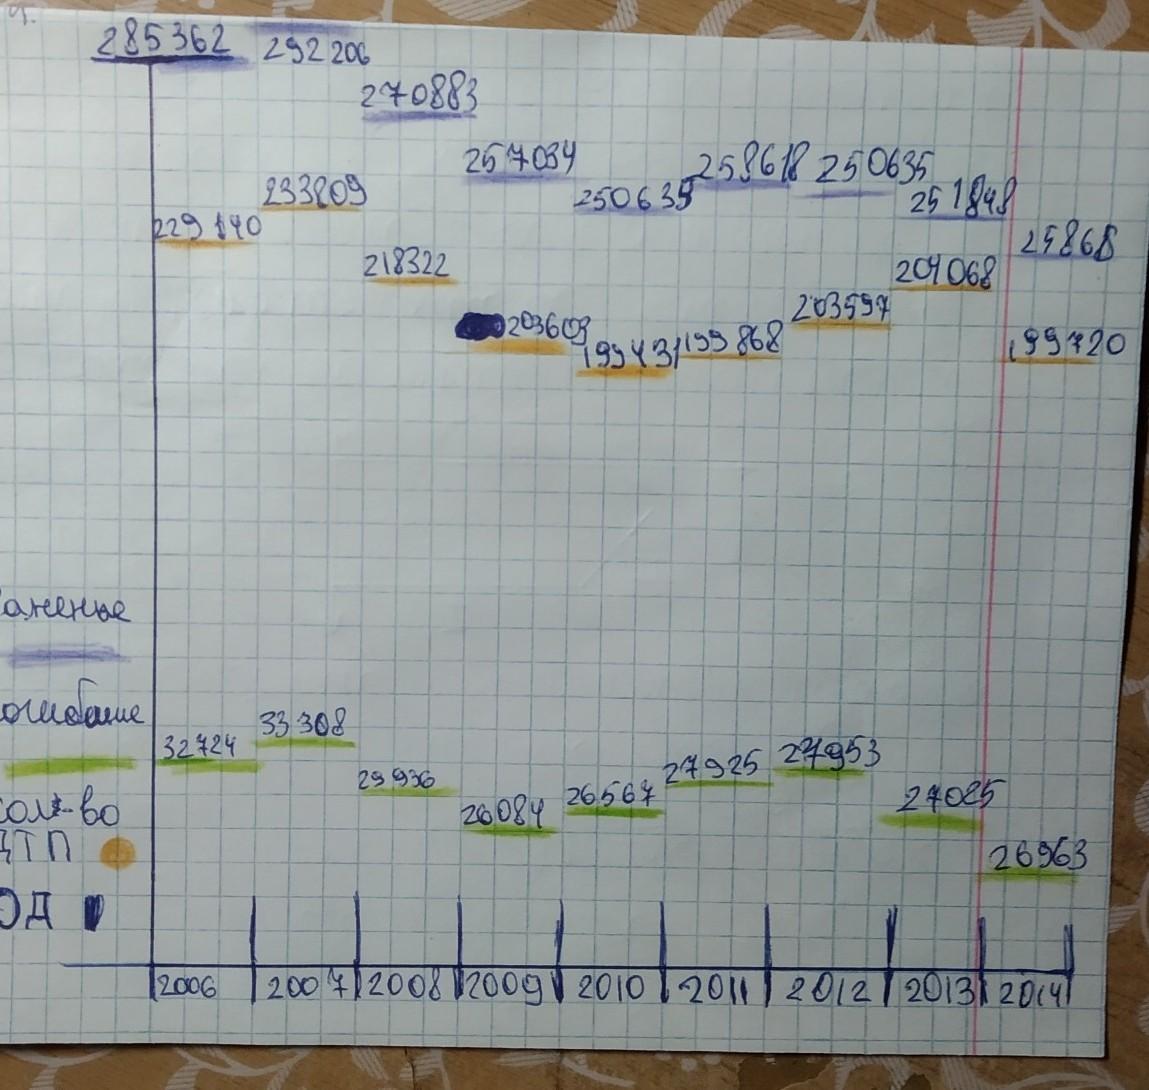 285362 292206
270883
257034 250635 258618 250635 251848 25868
229140 233809
218322
203603 199431 199868 203597 204068 199720
аненые
огибшие
32724 33308
29936 26084 26567 27925 27953 27025
26963
кол-во
ДТП
ОД
2006 2007 2008 2009 2010 2011 2012 2013 2014